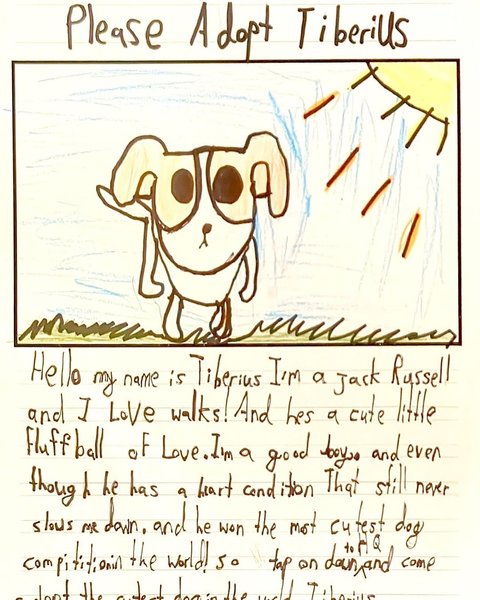 Please Adopt Tiberius
Hello my name is Tiberius I'm a Jack Russell
and I Love walks! And hes a cute little
fluff ball of Love. I'm a good boy. and even
though he has a heart condition That still never
slows me down. and he won the most cutest dog
compitition in the world! so tap on down to HQ and come
adopt the cutest dog in the world Tiberius